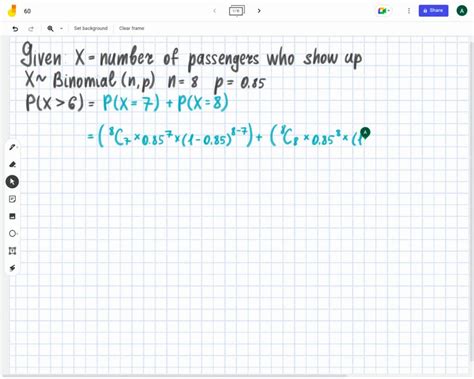 60
Share
A
Set background
Clear frame
Given X = number of passengers who show up
X ~ Binomial (n,p) n = 8 p = 0.85
P(X > 6) = P(X = 7) + P(X = 8)
= (⁸C₇ × 0.85⁷ × (1 - 0.85)⁸⁻⁷) + (⁸C₈ × 0.85⁸ × (1
A